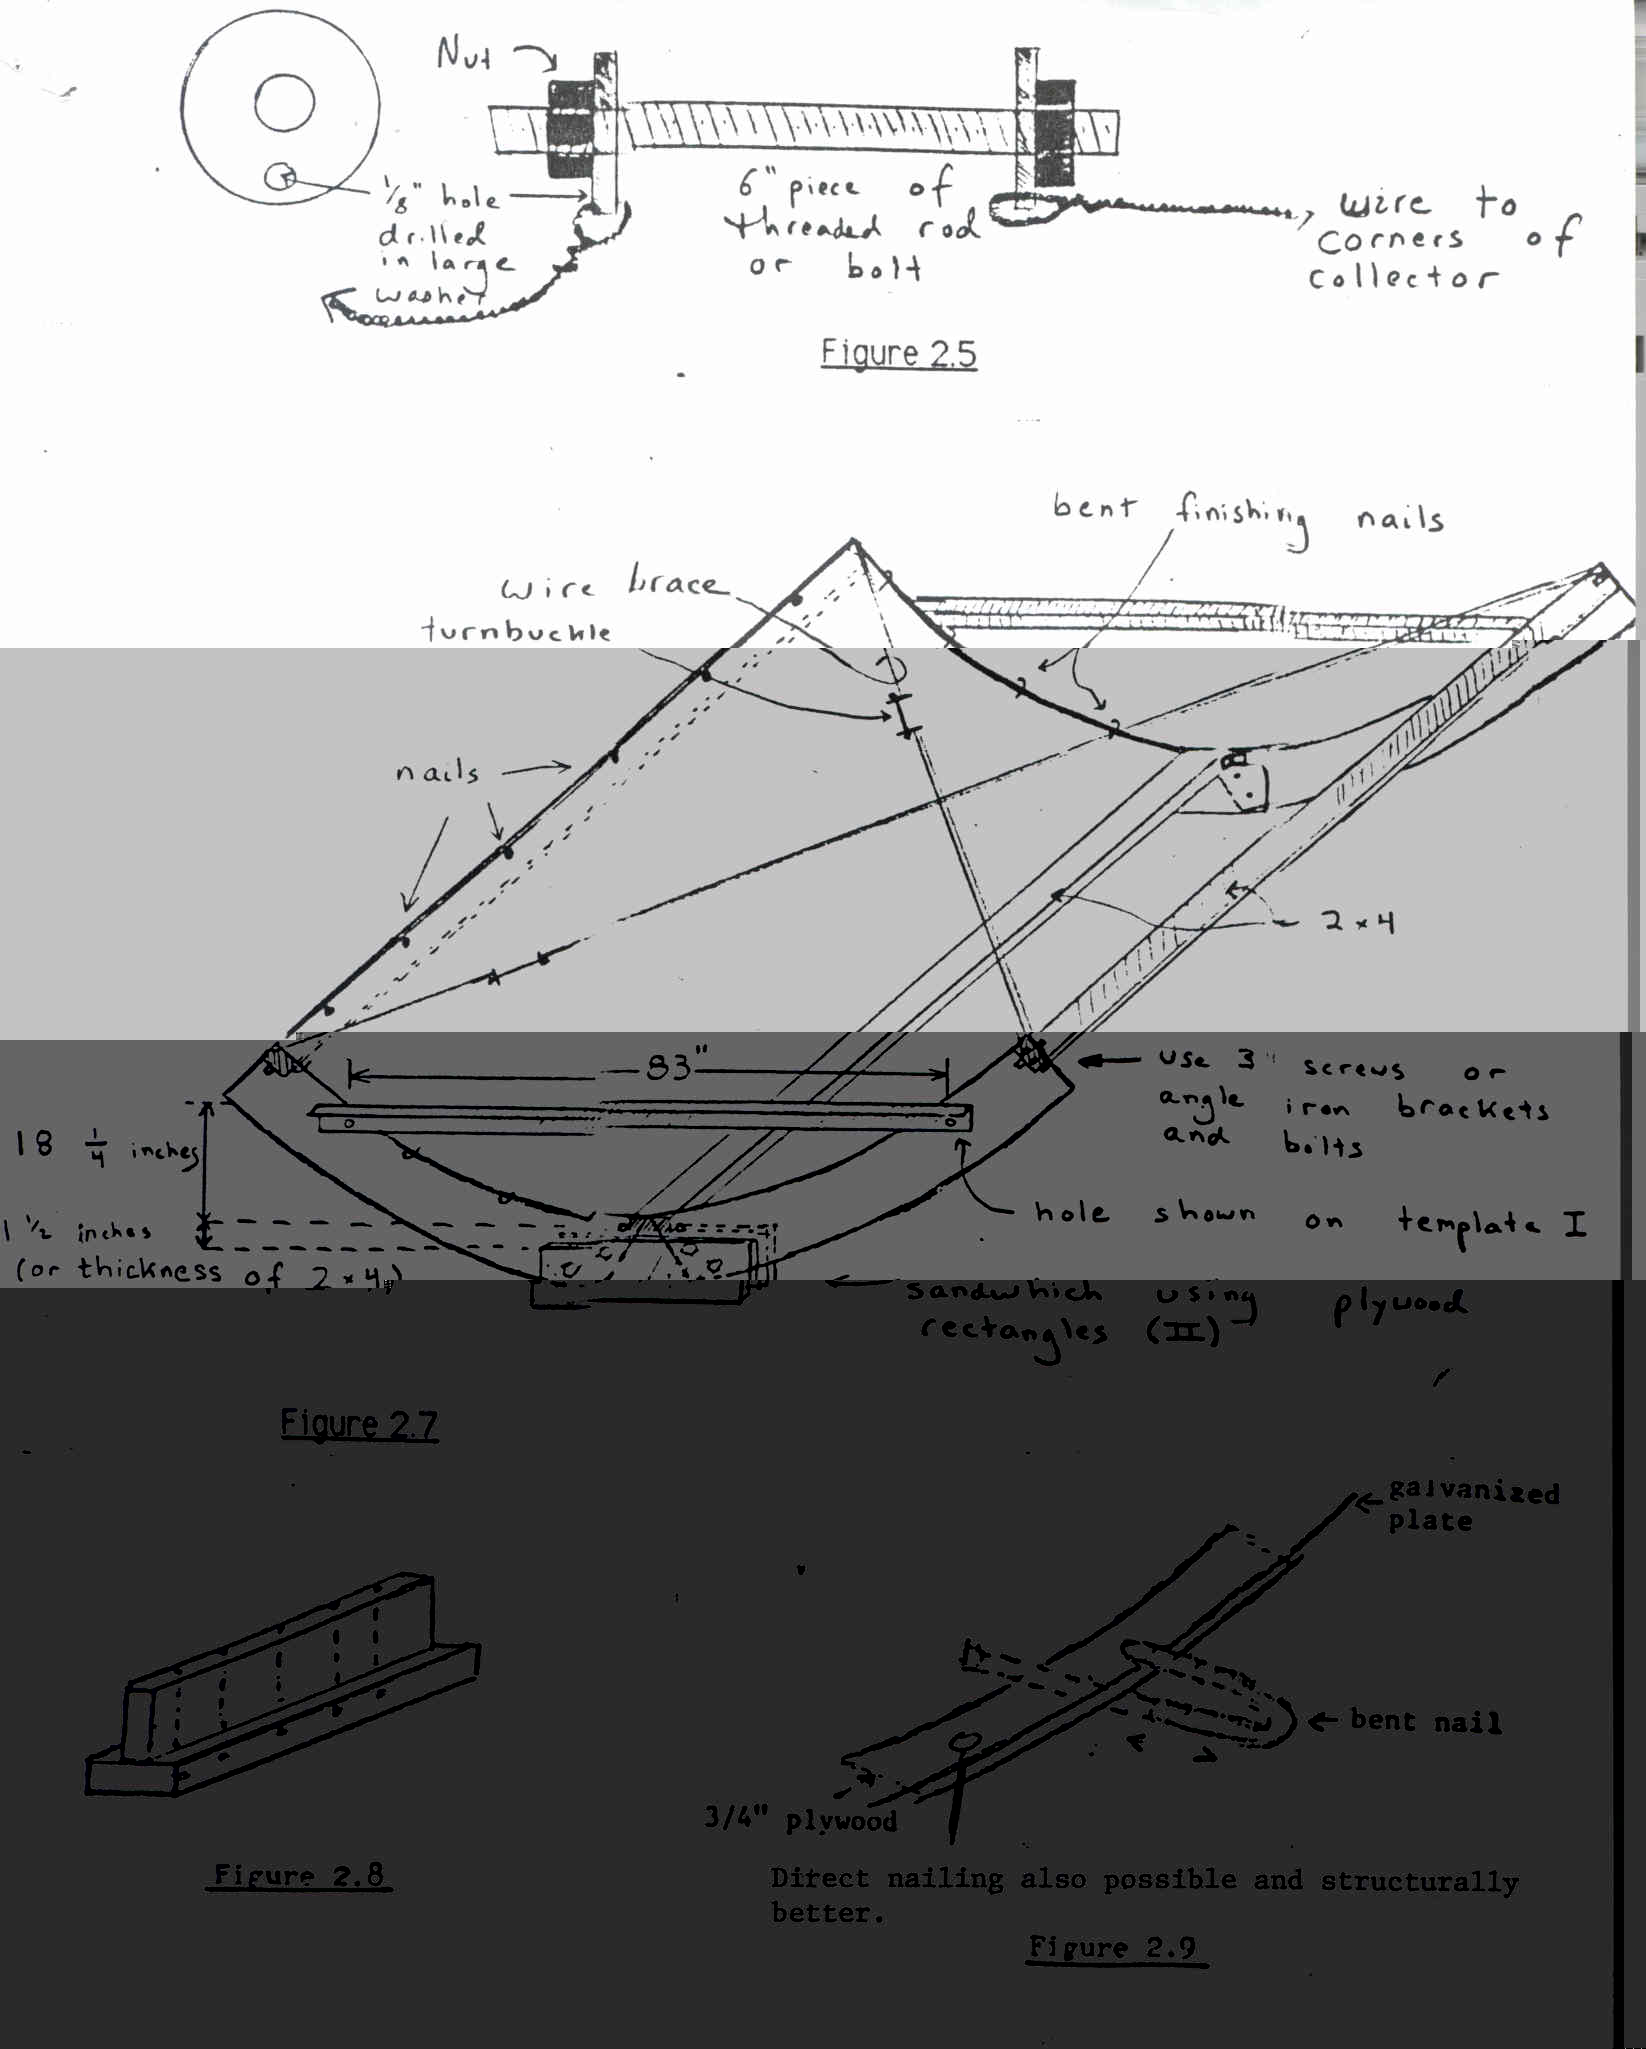 Nut
1/8" hole
drilled
in large
washer
6" piece of
threaded rod
or bolt
wire to
corners of
collector
Figure 2.5
bent finishing nails
wire brace
turnbuckle
nails
2x4
83"
use 3" screws or
angle iron brackets
and bolts
18 1/4 inches
1 1/2 inches
(or thickness of 2x4)
hole shown on template I
sandwhich using plywood
rectangles (II)
Figure 2.7
galvanized
plate
bent nail
3/4" plywood
Figure 2.8
Direct nailing also possible and structurally
better.
Figure 2.9